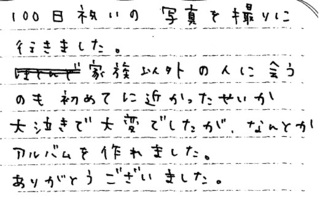 100日祝いの 写真を撮りに
行きました。
家族以外の人に会う
のも初めてに近かったせいか
大泣きで大変でしたが、なんとか
アルバムを作れました。
ありがとうございました。